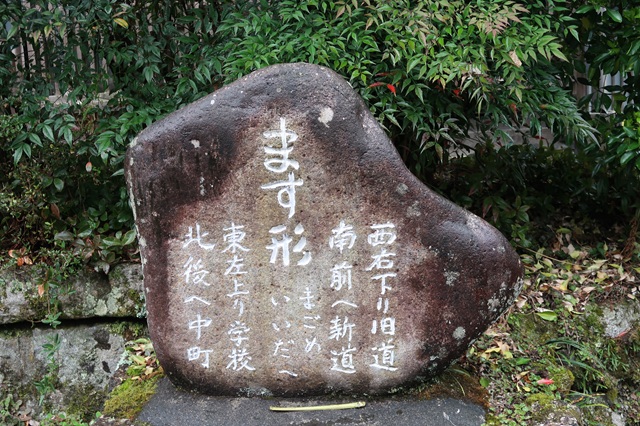 西右下り旧道
南前へ新道
まごめ
いいだへ
ます形
東左上り学校
北後へ中町